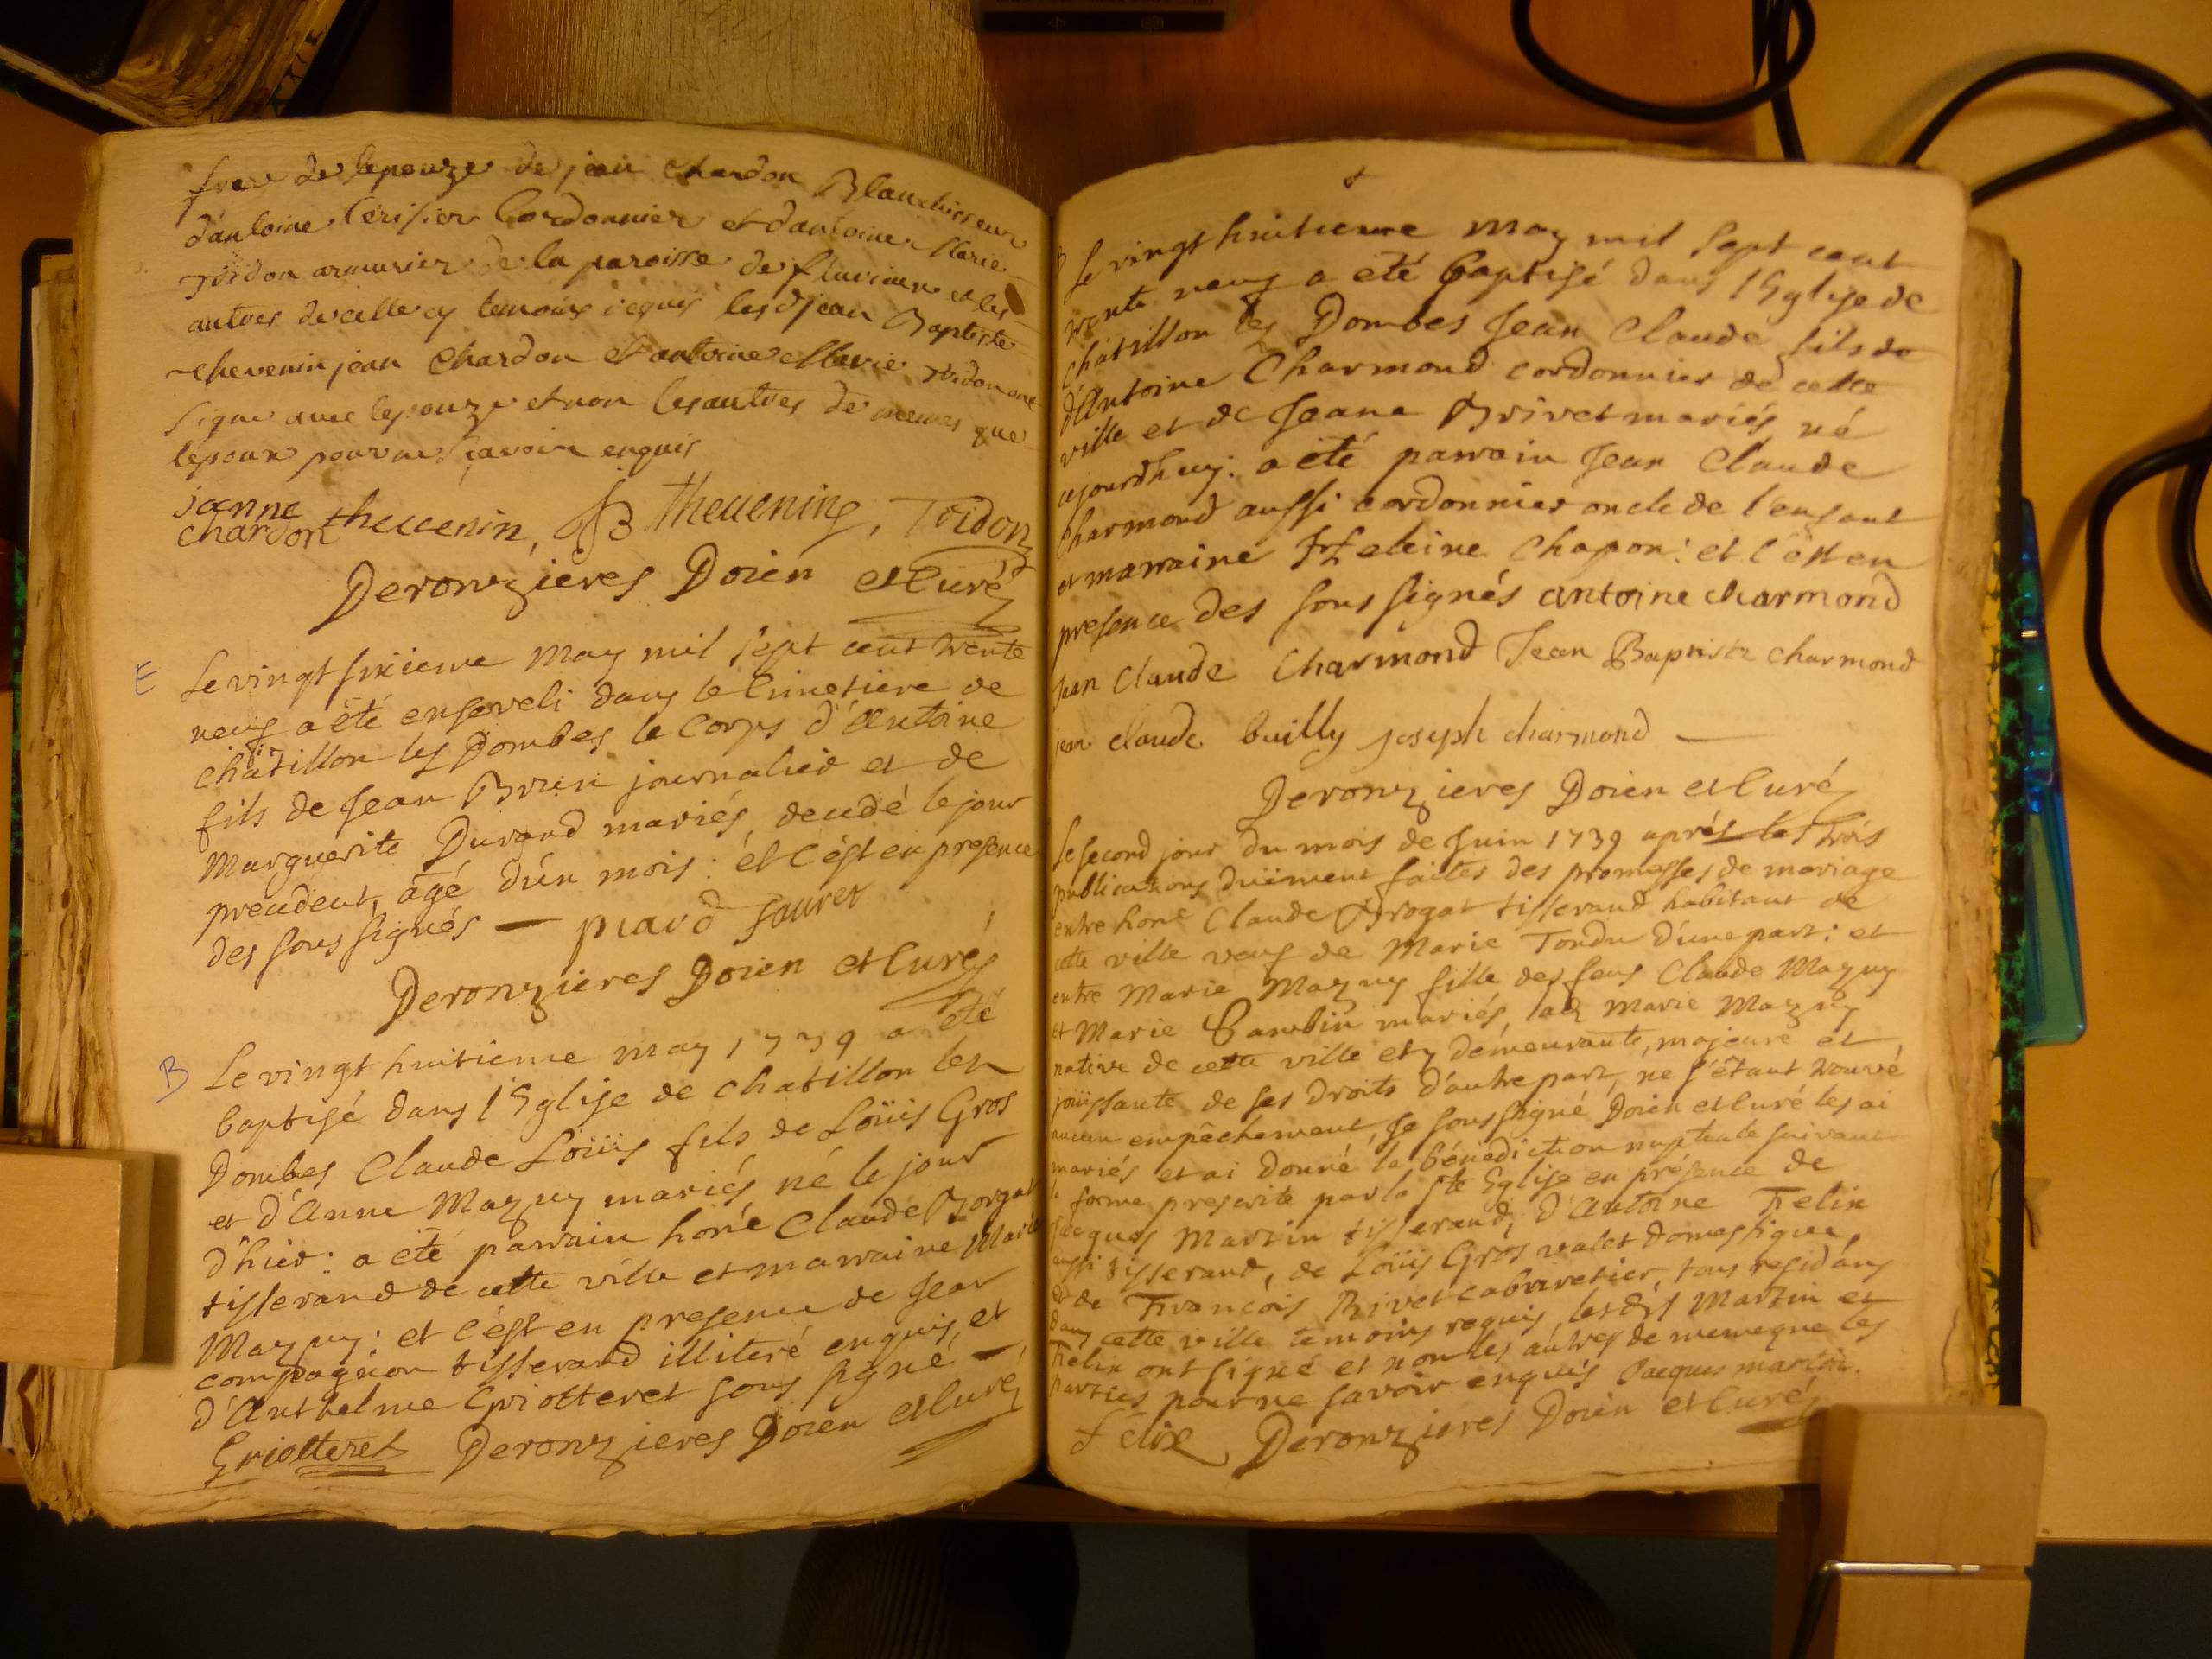 frere de lepouze de jean chardon Blanchisseur
d'antoine Cerisier Cordonnier et dantoine Marie
Tridon armurier de la paroisse de fluvieux et les
autres de celle cy temoins requis lesd jean Baptiste
Thevenin jean Chardon et antoine Marie Tridon ont
signe avec lepouze et non les autres de memes que
lepoux pour ne sçavoir enquis
jeanne
chardon theuenin, JB Theuening, Tridon
Deronzieres Doien et Curé
E Le vingt sixieme may mil sept cent trente
neuf a été enseveli dans le Cimetiere de
châtillon les Dombes le Corps d'Antoine
fils de Jean Brun journalier et de
Marguerite Durand mariés, decedé le jour
precedent, âgé d'un mois : et c'ést en presence
des sous signés — piard fauret
Deronzieres Doien et Curé
B Le vingt huitieme may 1739 a été
baptisé dans l'Eglise de chatillon les
Dombes Claude Loüis fils de Loüis Gros
et d'Anne Mazuy mariés né le jour
d'hier : a été parrain honé Claude Brogat
tisserand de cette ville et marraine Marie
Mazuy : et c'ést en presence de Jean
compagnon tisserand illiteré enquis, et
d'Anthelme Griotteret sous signé —
Griotteret Deronzieres Doien et Curé
B Le vingt huitieme may mil sept cent
trente neuf a été baptisé dans l'Eglise de
châtillon les Dombes Jean Claude fils de
d'Antoine Charmond cordonnier de cette
ville et de Jeane Brivet mariés né
ajourdhuy : a été parrain Jean Claude
Charmond aussi cordonnier oncle de l'enfant
et marraine Heleine Chapon : et c'ést en
presence des sous signés antoine charmond
Jean Claude Charmond Jean Baptiste charmond
jean claude builly joseph charmond —
Deronzieres Doien et Curé
Le second jour du mois de Juin 1739 aprés les trois
publications düement faites des promesses de mariage
entre honé Claude Brogat tisserand habitant de
cette ville veuf de Marie Tondu d'une part : et
entre Marie Mazuy fille des feus Claude Mazuy
et Marie Bambin mariés, lad Marie Mazuy
native de cette ville et y demeurante, majeure et
joüissante de ses droits d'autre part, ne s'étant trouvé
aucun empêchement, Je sous signé Doien et Curé les ai
mariés et ai donné la bénédiction nuptiale suivant
la forme prescrite par la Ste Eglise en présence de
Jacques Martin tisserand, d'Antoine Felix
aussi tisserand, de Loüis Gros valet domestique,
et de François Rivet cabaretier, tous residáns
dans cette ville temoins requis, lesdts Martin et
Felix ont signé et non les autres de meme que les
parties pour ne savoir enquis Jacques martin.
felix Deronzieres Doien et Curé